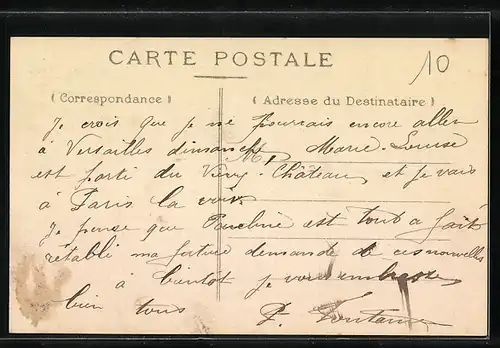 CARTE POSTALE
10
( Correspondance )
( Adresse du Destinataire )
Je crois que je ne pourrais encore aller
à Versailles dimanche, Marie-Louise
est parti du Vieux-Château, et je vais
à Paris la voir.
Je pense que est tout a fait
rétabli ma demande de ces nouvelles
à bientôt je vous embrasse
bien tous F. Fontaine